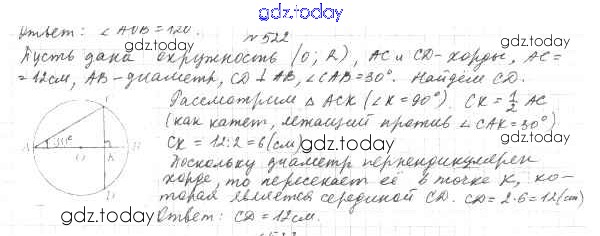 gdz.today
Ответ: ∠AOB=120.
№522
gdz.today gdz.today
Пусть дана окружность (O; R), AC и CD-хорды, AC=
=12см, AB-диаметр, CD⊥AB, ∠CAB=30°. Найдём CD.
gdz.today
Рассмотрим △ACK (∠K=90°). CK=1/2 AC
(как катет, лежащий против ∠CAK=30°)
CK=12:2=6(см) gdz.today
Поскольку диаметр перпендикулярен
хорде, то пересекает её в точке K, ко-
торая является серединой CD. CD=2·6=12(см)
Ответ: CD=12см.
gdz.today gdz.today
C
A 30° O K B
D